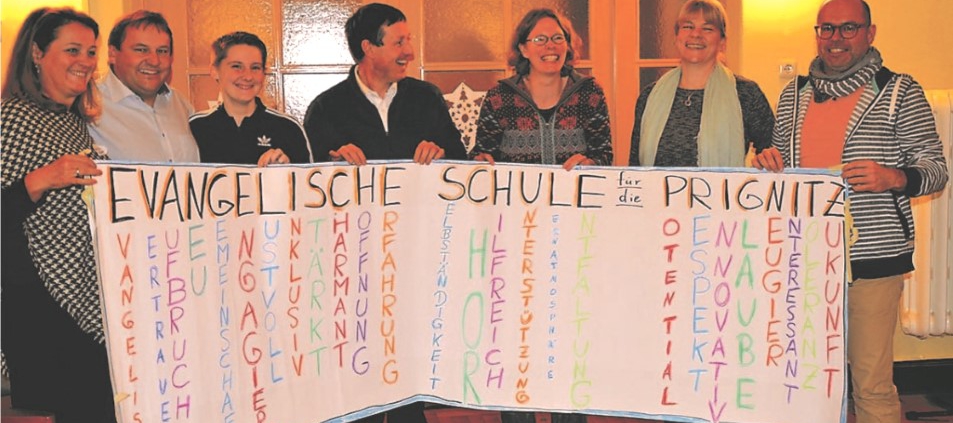 EVANGELISCHE SCHULE für die PRIGNITZ
VANGELIS
ERTRAUE
UFBRUCH
EU
EMEINSCHAF
NGAGIER
USTVOLL
NKLUSIV
TÄRKT
HARMANT
OFFNUNG
RFAHRUNG
ELBSTÄNDIGKEIT
HOR
ILFREICH
NTERSTÜTZUNG
ERNATMOSPHÄRE
NTFALTUNG
OTENTIAL
ESPEKT
NNOVATIV
LAUBE
EUGIER
NTERESSANT
OLERANZ
UKUNFT